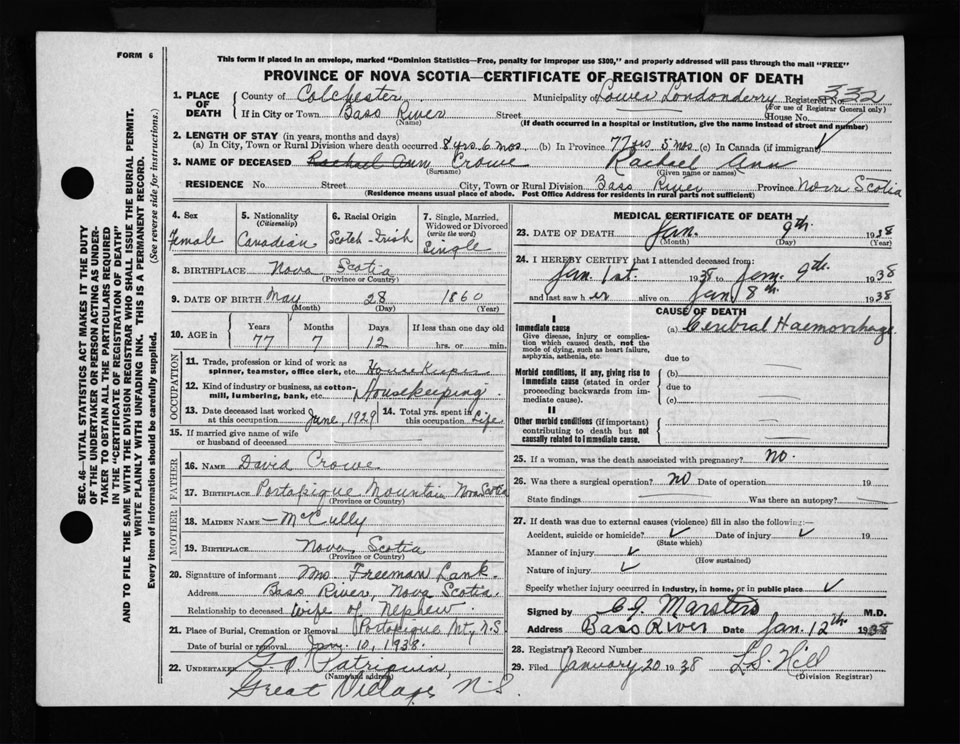 FORM 6
This form if placed in an envelope, marked "Dominion Statistics—Free, penalty for improper use $300," and properly addressed will pass through the mail "FREE"
PROVINCE OF NOVA SCOTIA—CERTIFICATE OF REGISTRATION OF DEATH
1. PLACE OF DEATH County of Colchester Municipality of Lower Londonderry Registered No. 332
(For use of Registrar General only)
If in City or Town Bass River Street House No.
(Name) (If death occurred in a hospital or institution, give the name instead of street and number)
2. LENGTH OF STAY (in years, months and days)
(a) In City, Town or Rural Division where death occurred 8 yrs. 6 mos. (b) In Province 77 yrs 5 mos. (c) In Canada (if immigrant)
3. NAME OF DECEASED Rachael Ann Crowe Rachael Ann
(Surname) (Given name or names)
RESIDENCE No. Street City, Town or Rural Division Bass River Province Nova Scotia
(Residence means usual place of abode. Post Office Address for residents in rural parts not sufficient)
4. Sex Female
5. Nationality (Citizenship) Canadian
6. Racial Origin Scotch-Irish
7. Single, Married, Widowed or Divorced (write the word) Single
8. BIRTHPLACE Nova Scotia
(Province or Country)
9. DATE OF BIRTH May 28 1860
(Month) (Day) (Year)
10. AGE in Years Months Days If less than one day old
77 7 12 hrs. or min.
OCCUPATION
11. Trade, profession or kind of work as
spinner, teamster, office clerk, etc. Housekeeper
12. Kind of industry or business, as cotton-
mill, lumbering, bank, etc. Housekeeping
13. Date deceased last worked at this occupation June, 1929 14. Total yrs. spent in this occupation Life
15. If married give name of wife
or husband of deceased
FATHER
16. NAME David Crowe
17. BIRTHPLACE Portapique Mountain Nova Scotia
(Province or Country)
MOTHER
18. MAIDEN NAME — McCully
19. BIRTHPLACE Nova Scotia
(Province or Country)
20. Signature of informant Mrs. Freeman Lank.
Address Bass River, Nova Scotia.
Relationship to deceased Wife of Nephew.
21. Place of Burial, Cremation or Removal Portapique Mt, N.S.
Date of burial or removal Jan. 10, 1938.
22. UNDERTAKER G. D. Patriquin,
(Name and address)
Great Village, N.S.
MEDICAL CERTIFICATE OF DEATH
23. DATE OF DEATH Jan. 9th. 1938
(Month) (Day) (Year)
24. I HEREBY CERTIFY that I attended deceased from:
Jan. 1st. 1938 to Jan. 9th. 1938
and last saw her alive on Jan. 8th. 1938
CAUSE OF DEATH
I
Immediate cause
Give disease, injury or complication which caused death, not the mode of dying, such as heart failure, asphyxia, asthenia, etc.
(a) Cerebral Haemorrhage
due to
Morbid conditions, if any, giving rise to immediate cause (stated in order proceeding backwards from immediate cause).
(b)
due to
(c)
II
Other morbid conditions (if important) contributing to death but not causally related to immediate cause.
25. If a woman, was the death associated with pregnancy? no.
26. Was there a surgical operation? no Date of operation 19
State findings Was there an autopsy?
27. If death was due to external causes (violence) fill in also the following:—
Accident, suicide or homicide? Date of injury 19
(State which)
Manner of injury
(How sustained)
Nature of injury
Specify whether injury occurred in industry, in home, or in public place
Signed by C. J. Marsters M.D.
Address Bass River Date Jan. 12th. 1938
28. Registrar's Record Number
29. Filed January 20 1938 L.S. Hill
(Division Registrar)
SEC. 46—VITAL STATISTICS ACT MAKES IT THE DUTY
OF THE UNDERTAKER OR PERSON ACTING AS UNDER-
TAKER TO OBTAIN ALL THE PARTICULARS REQUIRED
IN THE "CERTIFICATE OF REGISTRATION OF DEATH"
AND TO FILE THE SAME WITH THE DIVISION REGISTRAR WHO SHALL ISSUE THE BURIAL PERMIT.
WRITE PLAINLY WITH UNFADING INK. THIS IS A PERMANENT RECORD.
Every item of information should be carefully supplied. (See reverse side for instructions.)